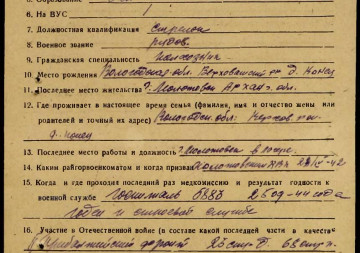 6. На ВУС 1
7. Должностная квалификация Стрелок
8. Военное звание рядов.
9. Гражданская специальность колхозник
10. Место рождения Вологодская обл. Верховажский р-н д. Конец
11. Последнее место жительства г. Молотовск Арханг. обл.
12. Где проживает в настоящее время семья (фамилия, имя и отчество жены или
родителей и точный их адрес) Вологодск. обл.
д. Конец
13. Последнее место работы и должность г. Молотовск
14. Каким райгорвоенкоматом и когда призван Молотовским РВК 42
15. Когда и где проходил последний раз медкомиссию и результат годности к
военной службе 25.09-44 года
годен к строевой службе
16. Участие в Отечественной войне (в составе какой последней части в качестве
Прибалтийский фронт